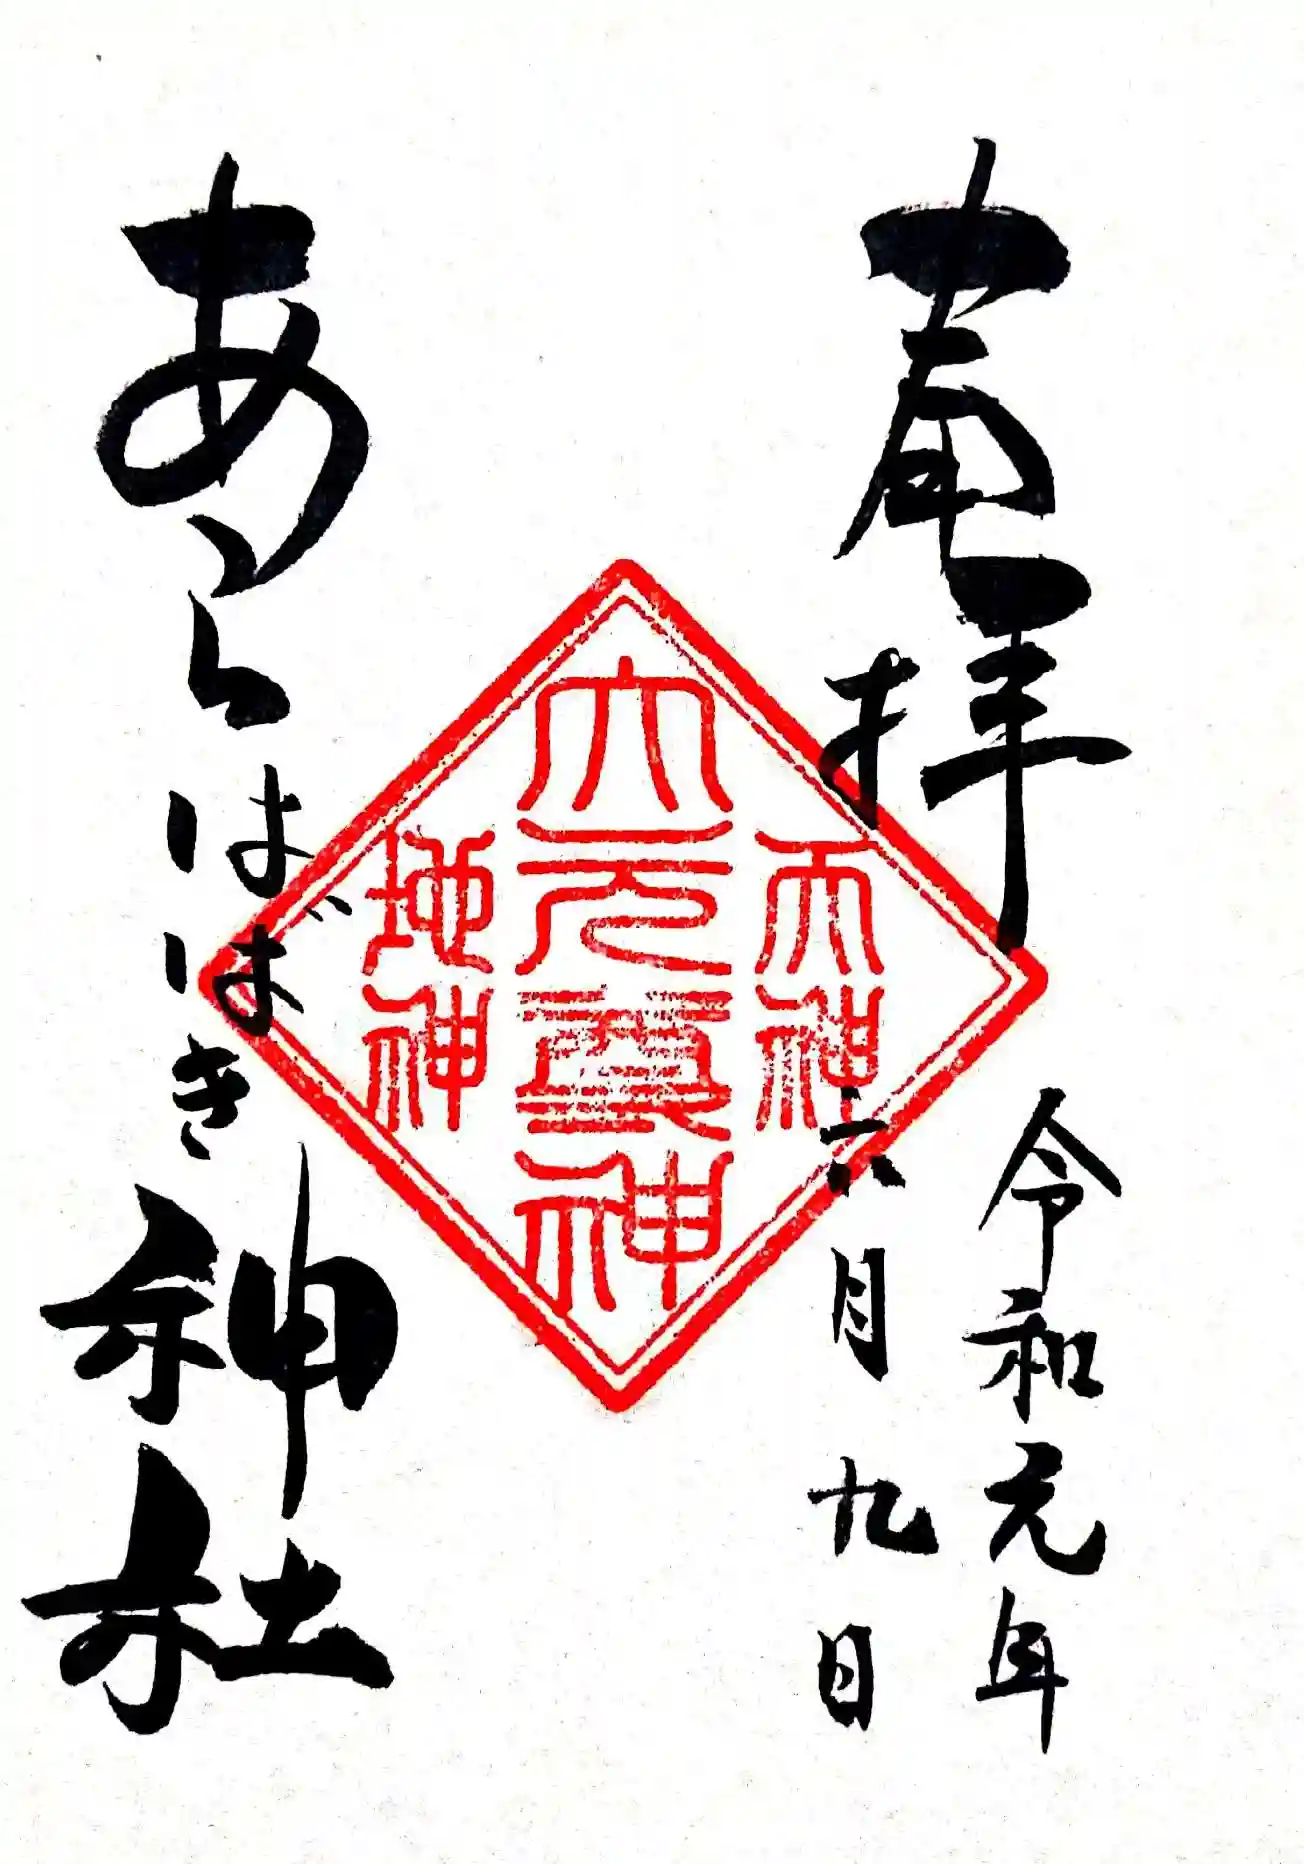 拝
令和元年
六月九日
天神
大元尊神
地神
あらはばき神社